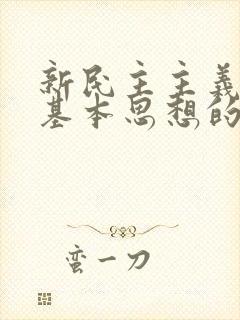 新民主主義
基本思想的
蛮一刀